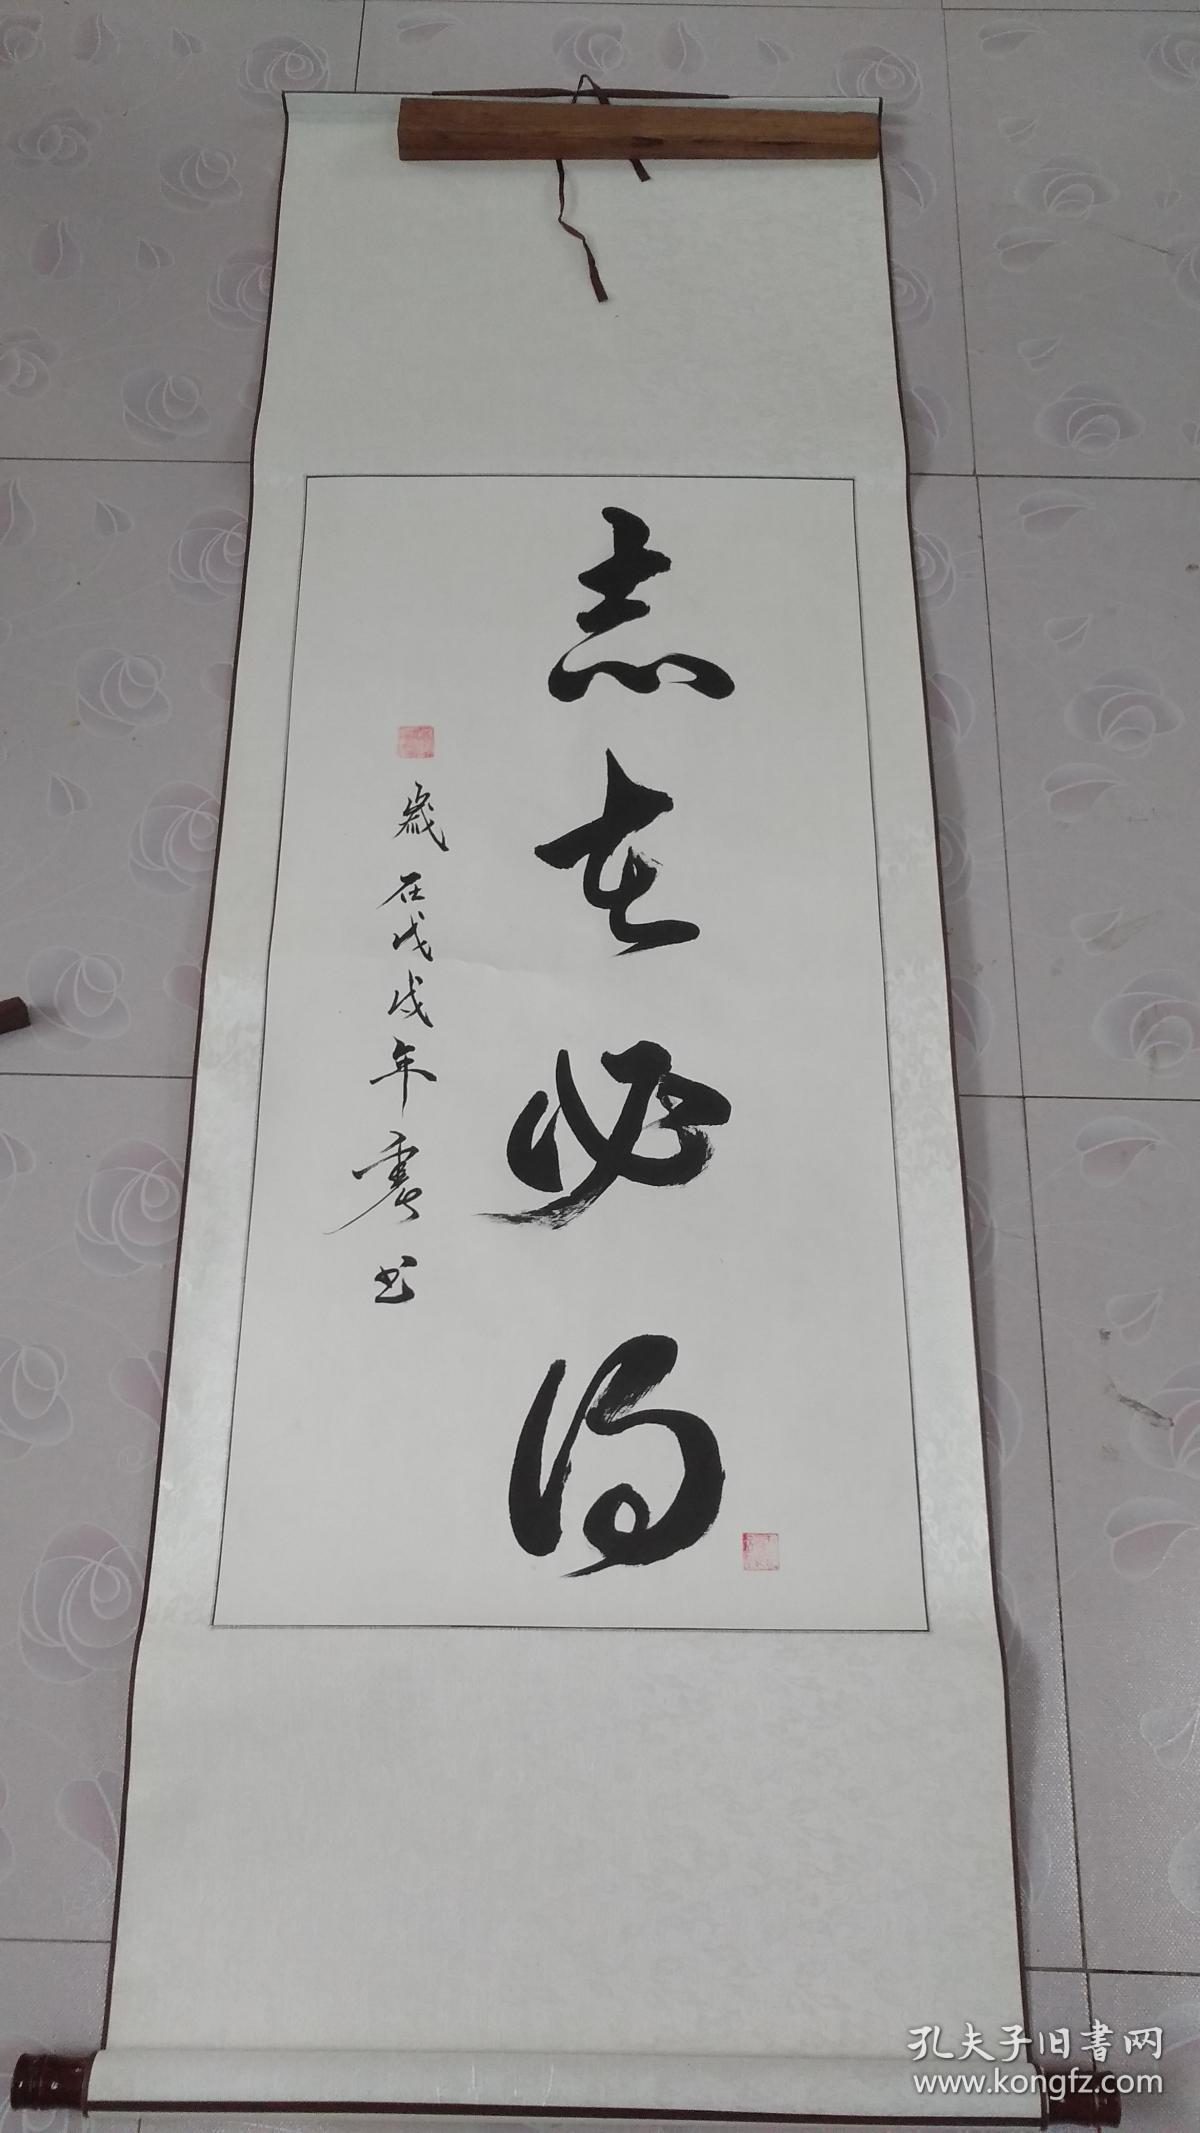 志在必得
歲在戊戌年
书
孔夫子旧書网
www.kongfz.com